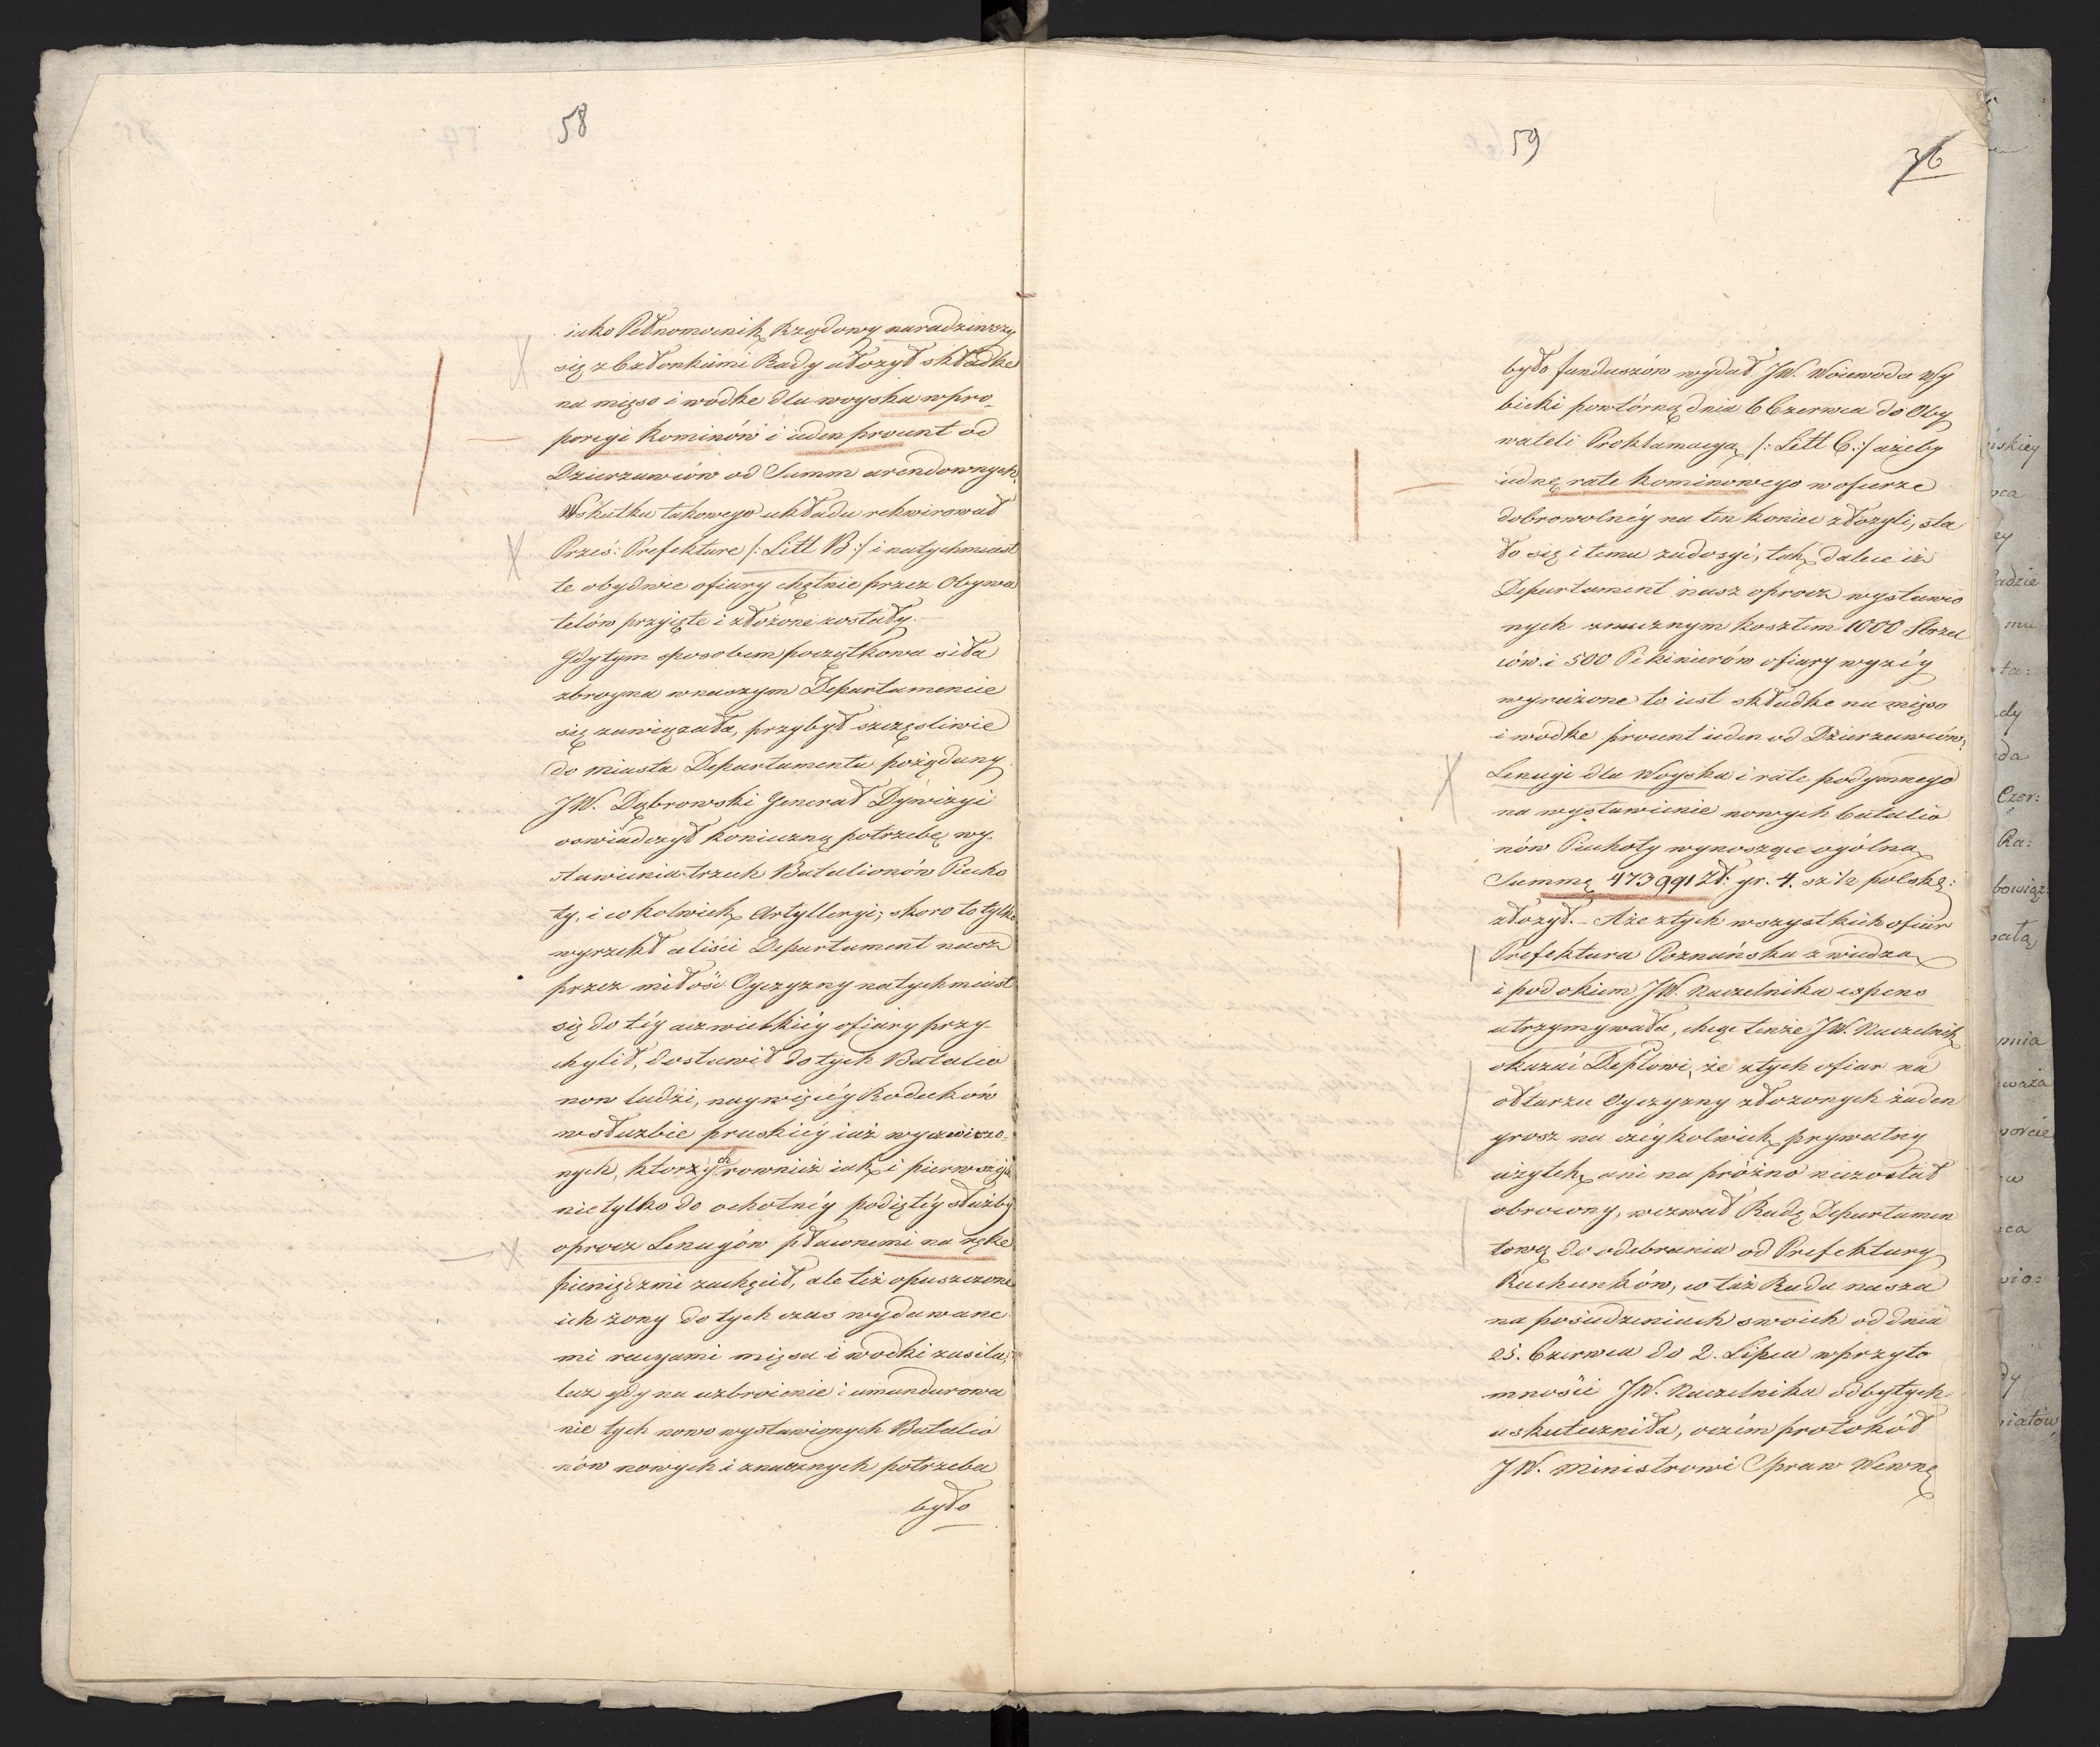 58
iako Pełnomocnik Rządowy naradziwszy
się z Członkami Rady ułożył składkę
na mięso i wodkę dla woyska wpro-
porcyi Kominów i ieden procent od
Dzierzawców od Summ arendownych.
Wskutku takowego układu rekwirował
Prześ: Prefekture /: Litt B :/ i natychmiast
te obydwie ofiary chętnie przez Obywa
telów przyięte i złożone zostały.—
Gdy tym sposobem początkowa siła
zbroyna w naszym Departamencie
się zawiązała, przybył szczęsliwie
do miasta Departamentu pożądany
JW. Dąbrowski Generał Dywizyi
oswiadczył konieczną potrzebę wy-
stawienia trzech Batalionów Piecho
ty, i co kolwiek Artylleryi; skoro to tylko
wyrzekł aliści Departament nasz
przez miłość Oyczyzny natychmiast
się do téy acz wielkiéy ofiary przy-
chylił, dostawił do tych Batalio
now ludzi, naywięcéy Rodaków
w służbie pruskiéy iuż wycwiczo-
nych, ktorzych rownież iak i pierwszych
nie tylko do ochotnéy podiętéy służby
oprocz Lenugów pławnemi na rękę
pieniędzmi zachęcił, ale też opuszczone
ich żony do tych czas wydawane
mi racyami mięsa i wodki zasila;
lecz gdy na uzbroienie i umundurowa
nie tych nowo wystawionych Batalio
nów nowych i znacznych potrzeba
było
59
36
było funduszów wydał JW. Woiewoda Wy
bicki powtórną dnia 6 Czerwca do Oby
wateli Proklamacyą /: Litt C :/ ażeby
iednę ratę kominowego w ofierze
dobrowolnéy na ten koniec złożyli, sta
ło się i temu zadosyć, tak dalece iż
Departament nasz oprocz wystawio
nych znacznym kosztem 1000 Strzel
ców i 500 Pikinierów ofiary wyzéy
wyrażone to iest składkę na mięso
i wodkę procent ieden od Dzierzawców,
Lenugi dla Woyska i ratę podymnego
na wystawienie nowych batalio
nów Piechoty wynoszące ogólną
Summę 473991 Zł: gr. 4. polskę:
złożył.— Aże z tych wszystkich ofiar
Prefektura Poznańska z wiedzą
i pod okiem JW. Naczelnika espens
utrzymywała, chcąc tenże JW. Naczelnik
okazać Deptowi, że z tych ofiar na
ołtarzu Oyczyzny złożonych żaden
grosz na czéykolwiek prywatny
użytek ani na próżno nie został
obrocony, wezwał Radę Departamen
tową do odebrania od Prefektury
Rachunków, co też Rada nasza
na posiedzeniach swoich od dnia
25. Czerwca do 2. Lipca w przyto
mności JW. Naczelnika odbytych
uskuteczniła, oczém protokół
JW. Ministrowi Spraw Wewnę